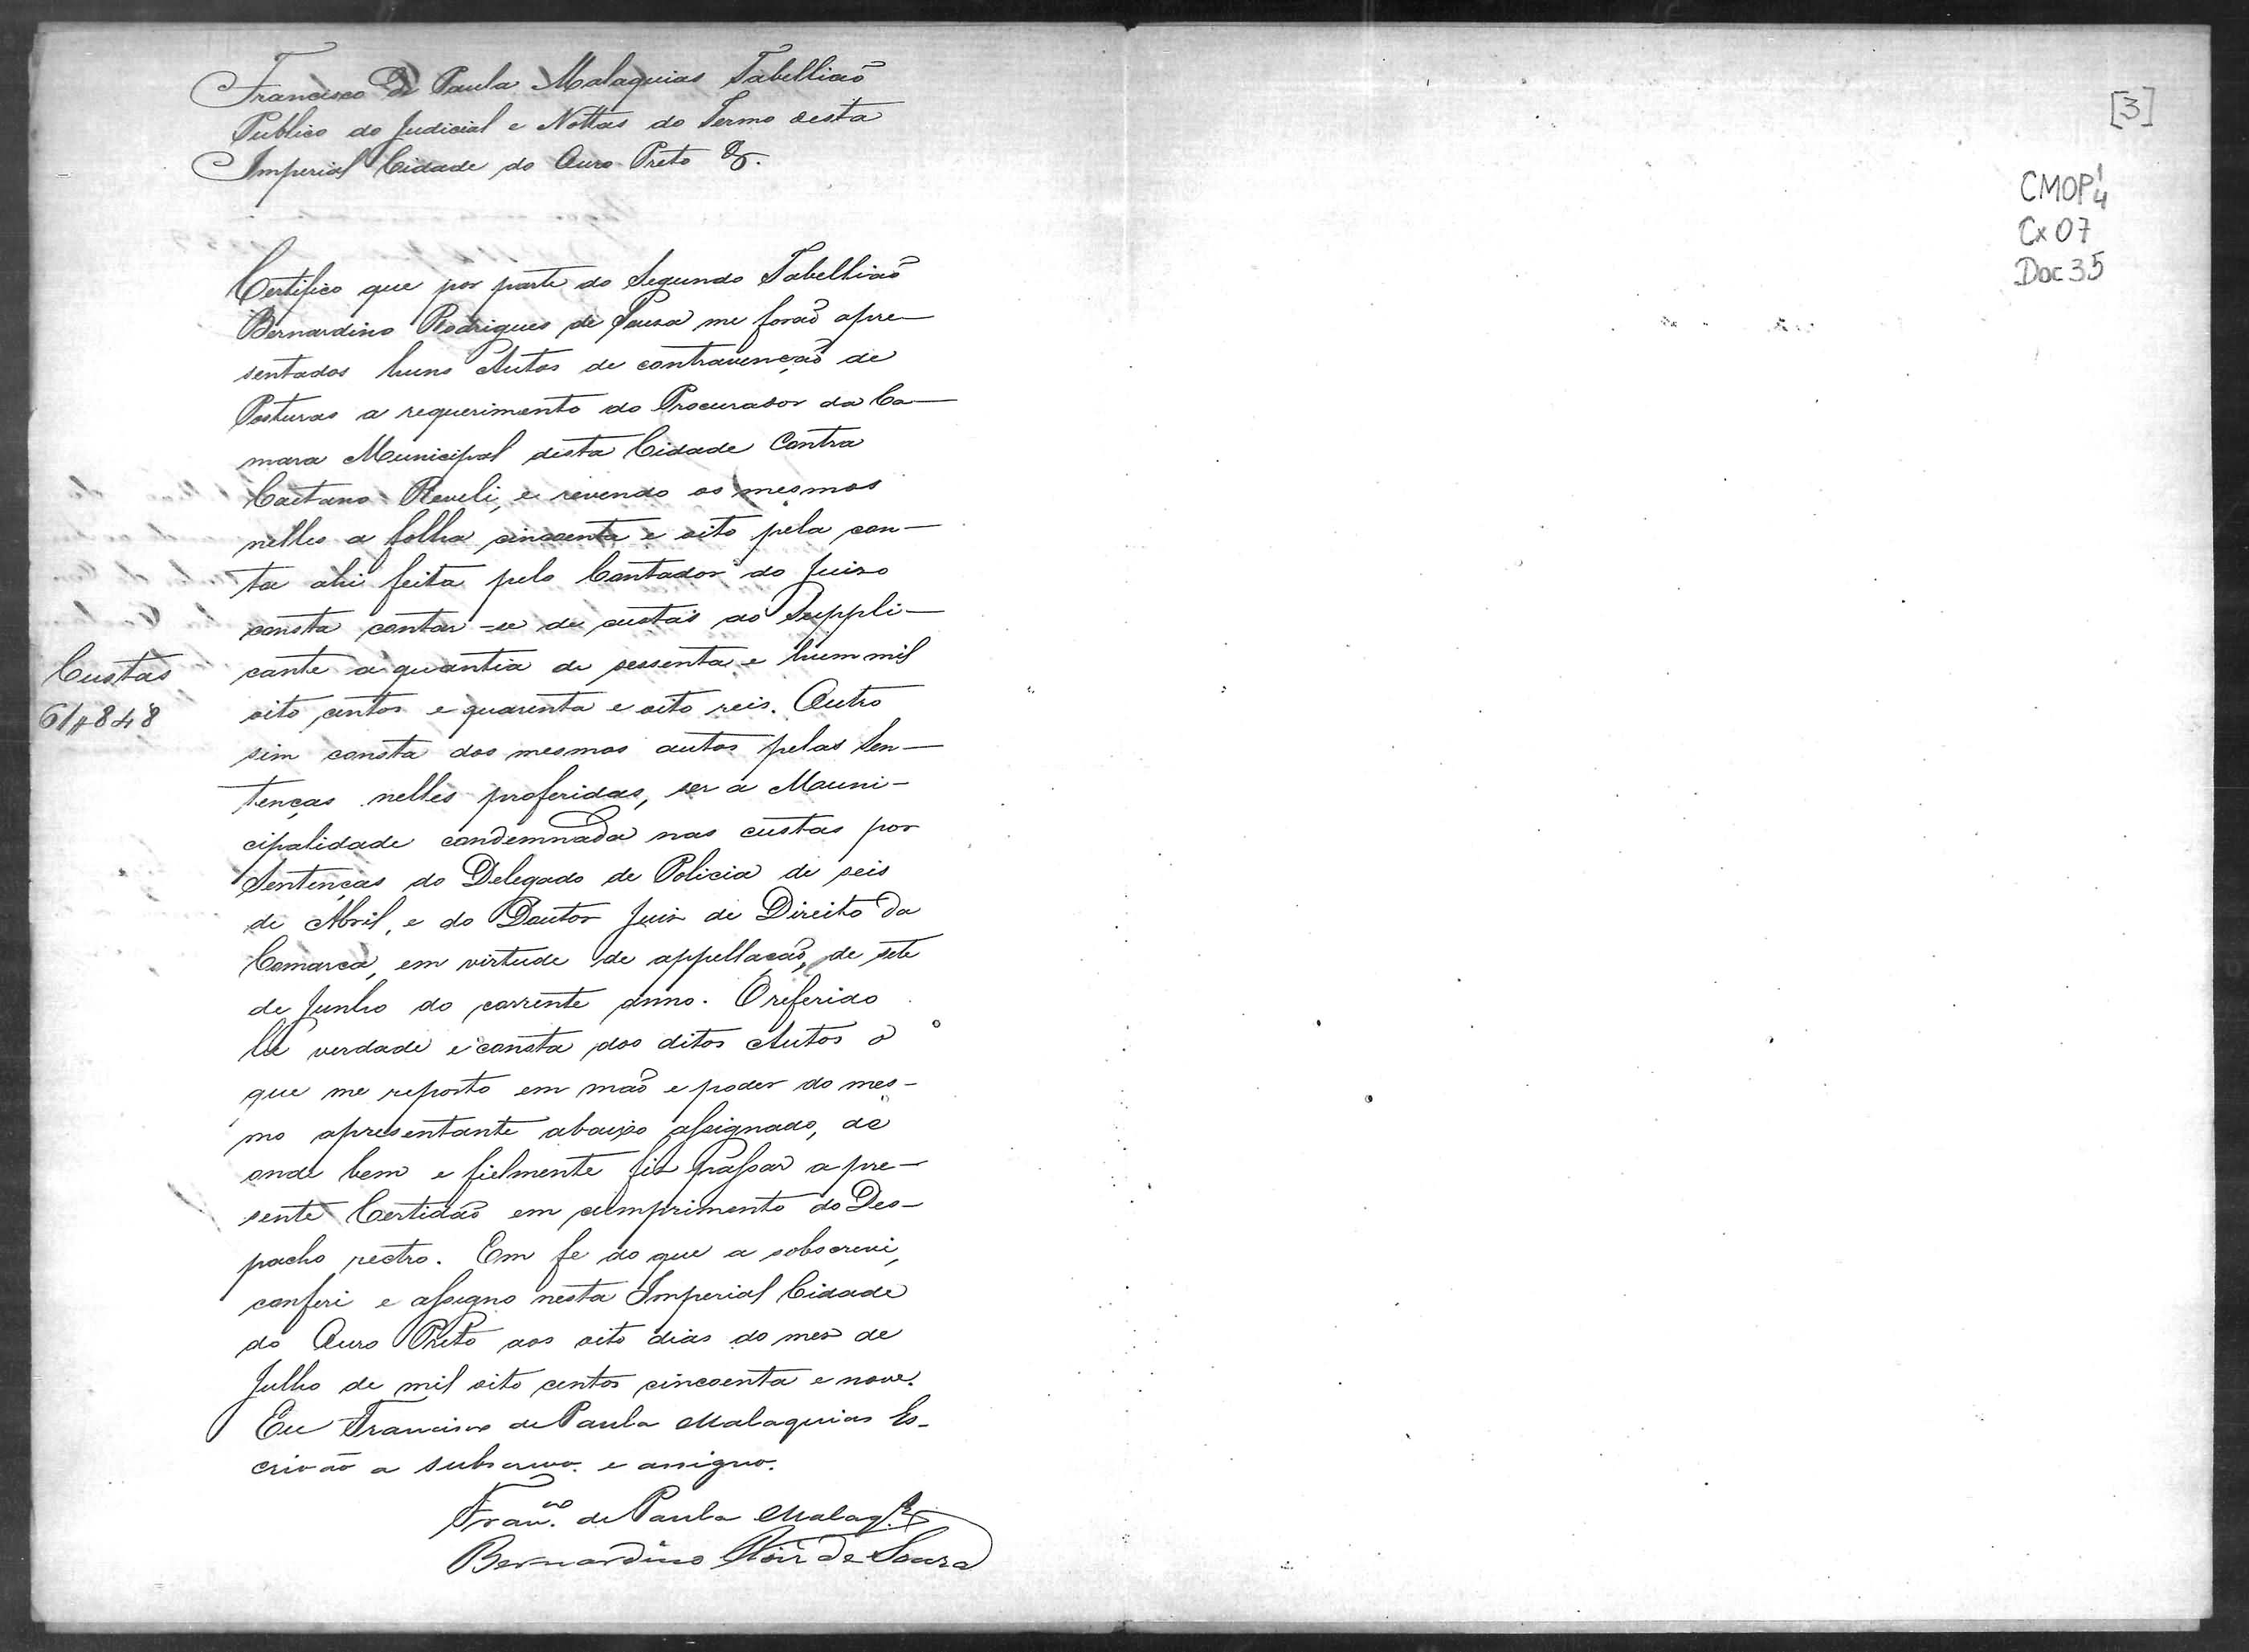 Francisco de Paula Malaquias Tabellião
Publico do Judicial e Nottas do Termo desta
Imperial Cidade do Ouro Preto &.
Certifico que por parte do Segundo Tabellião
Bernardino Rodrigues de Sousa me forão apre-
sentados huns Autos de contravenção de
Posturas a requerimento do Procurador da Ca-
mara Municipal desta Cidade Contra
Caetano Reveli, e revendo os mesmos
nelles a folha cincoenta e oito pela con-
ta ahi feita pelo Contador do Juiso
consta contar-se de custas ao Suppli-
cante a quantia de sessenta e hum mil
oito centos e quarenta e oito reis. Outro
sim consta dos mesmos autos pelas Sen-
tenças nelles proferidas, ser a Muni-
cipalidade condemnada nas custas por
Sentenças do Delegado de Policia de seis
de Abril, e do Doutor Juis de Direito da
Comarca, em virtude de appellação, de sete
de Junho do corrente anno. O referido
hé verdade e consta dos ditos Autos o
que me reporto em mão e poder do mes-
mo apresentante abaixo assignado, de
onde bem e fielmente fis passar a pre-
sente Certidão em cumprimento do Des-
pacho rectro. Em fe do que a sobscrevi,
conferi e assigno nesta Imperial Cidade
do Ouro Preto aos oito dias do mes de
Julho de mil oito centos cincoenta e nove.
Eu Francisco de Paula Malaquias Es-
crivão a subscrevo e assigno.
Fran.co de Paula Malaq.s
Bernardino Roiz de Souza
Custas
61#848
[3]
CMOP 1/4
Cx 07
Doc 35